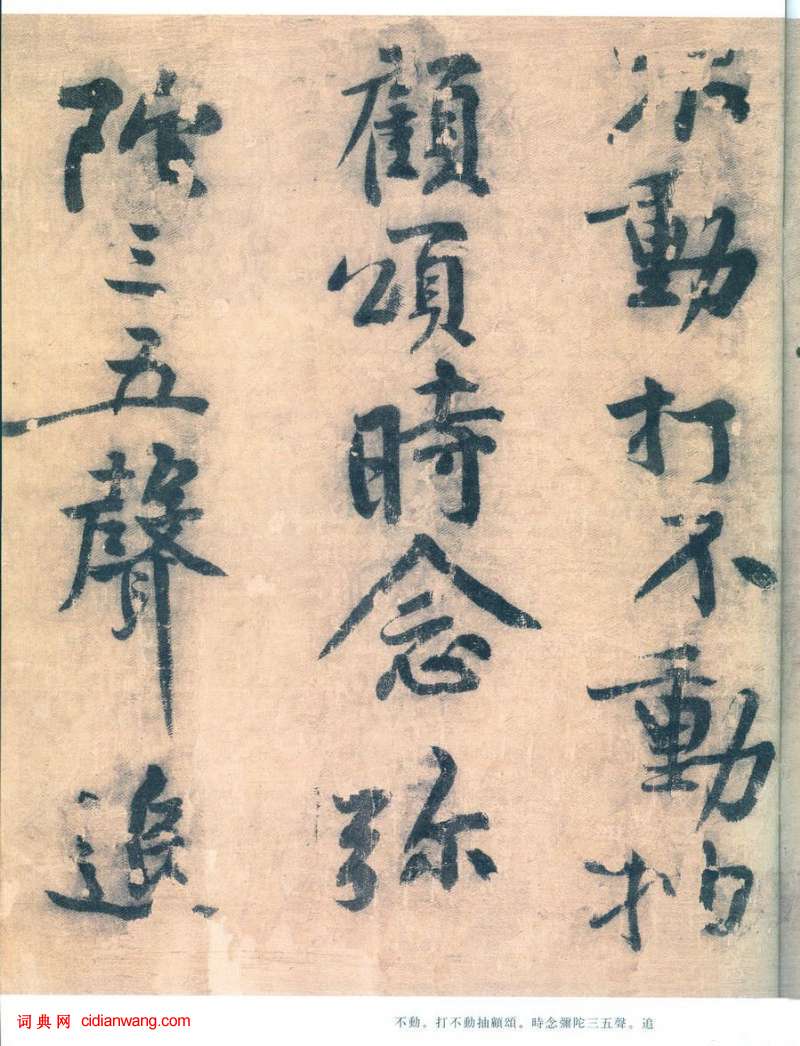 不動打不動抽
顧頌時念弥
陀三五聲追
词典网 cidianwang.com
不動。打不動抽顧頌。時念彌陀三五聲。追